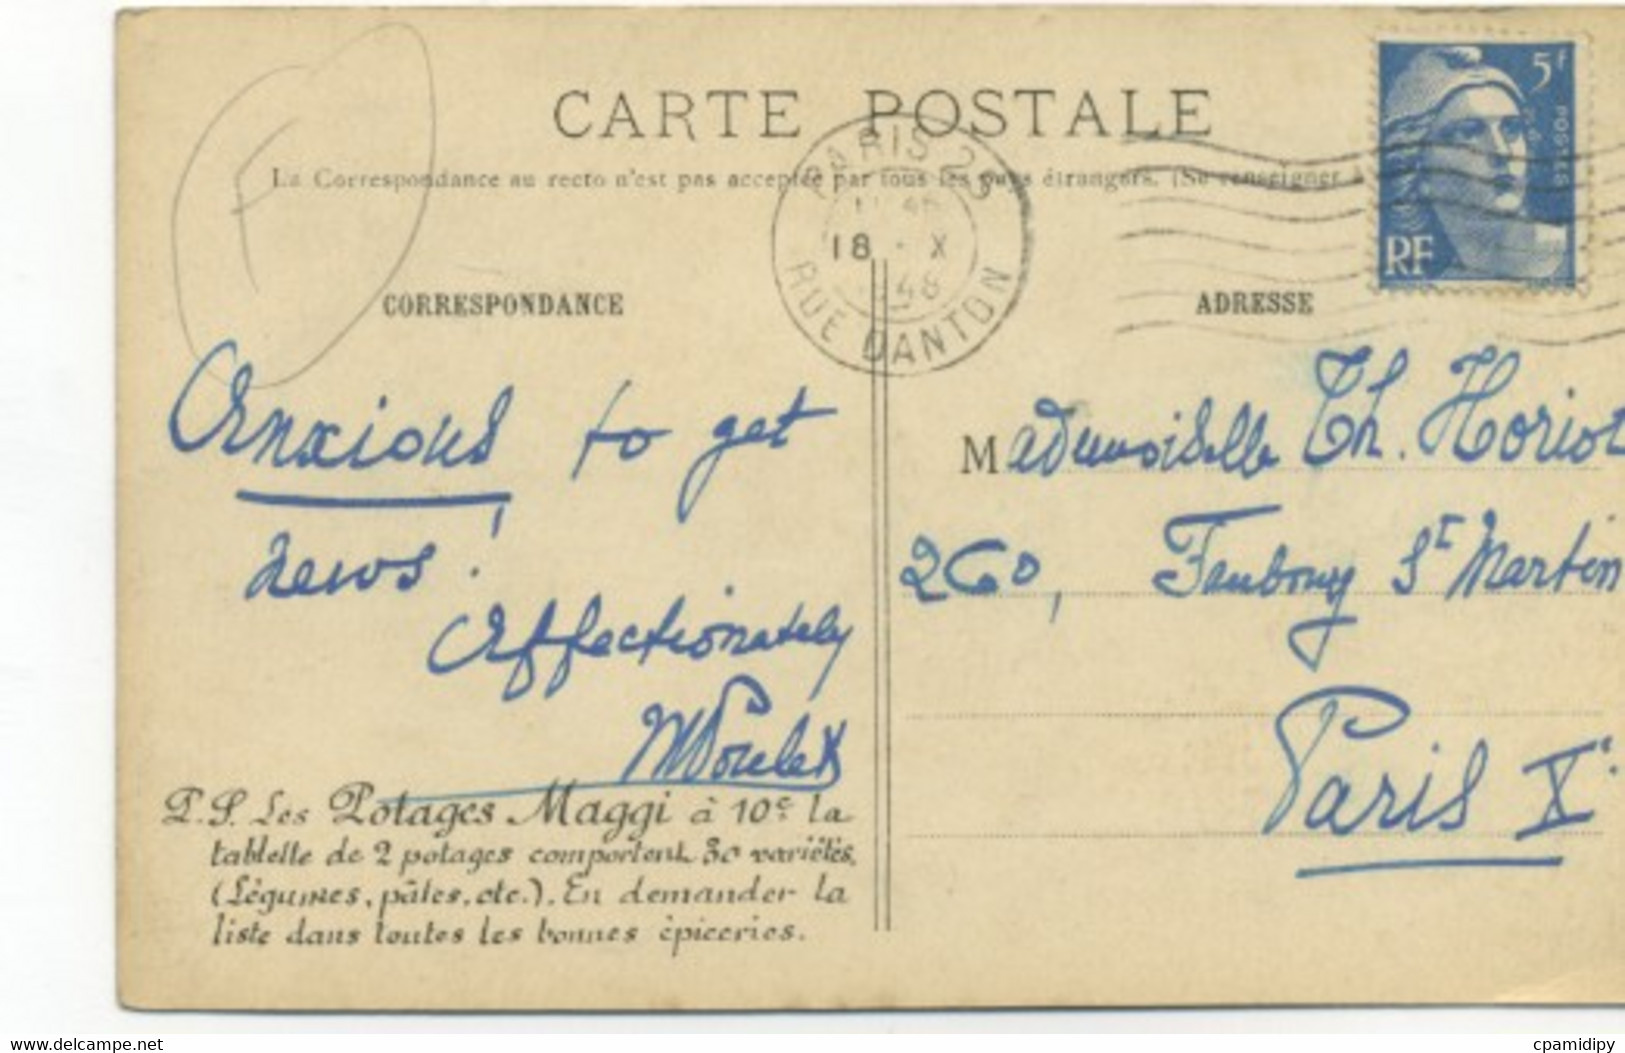 CARTE POSTALE
La Correspondance au recto n'est pas acceptée par tous les pays étrangers. (Se renseigner
PARIS 25
18 X
48
RUE DANTON
5f
POSTES
RF
F
CORRESPONDANCE
ADRESSE
Anxious to get
news!
Affectionately
Mademoiselle Th. Horiot
260, Faubourg St Martin
Paris X
P.S. Les Potages Maggi à 10c la
tablette de 2 potages comportent 30 variétés.
(Légumes, pâtes, etc.). En demander la
liste dans toutes les bonnes épiceries.
www.delcampe.net
cpamidipy